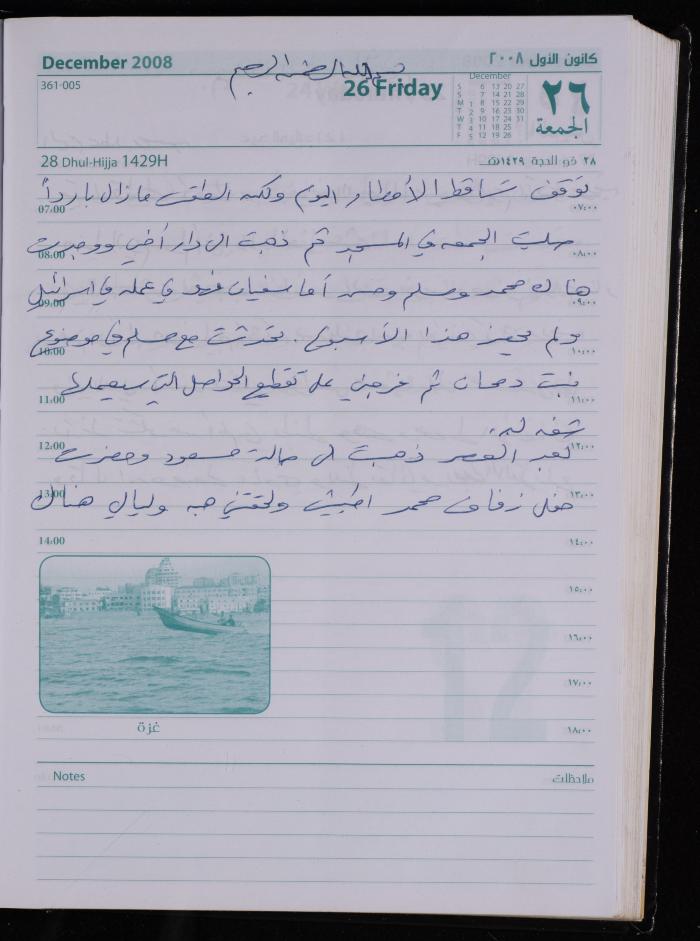 December 2008
كانون الأول ٢٠٠٨
بسم الله الرحمن الرحيم
361-005
26 Friday
December
S 6 13 20 27
S 7 14 21 28
M 1 8 15 22 29
T 2 9 16 23 30
W 3 10 17 24 31
T 4 11 18 25
F 5 12 19 26
٢٦
الجمعة
28 Dhul-Hijja 1429H
٢٨ ذو الحجة ١٤٢٩هـ
توقف تساقط الأمطار اليوم ولكن الطقس مازال بارداً
07:00 ٠٧:٠٠
صليت الجمعه في المسجد ثم ذهبت الى دار أخي ووجدت
08:00 ٠٨:٠٠
هناك محمد ومسلم وحسن أما سفيان فهو في عمله في اسرائيل
09:00 ٠٩:٠٠
ولم يحضر هذا الأسبوع. تحدثت مع مسلم في موضوع
10:00 ١٠:٠٠
بيت ثم على تقطيع الحواصل التي سيعملها
11:00 ١١:٠٠
شقه له.
12:00 ١٢:٠٠
بعد العصر ذهبت الى صالة مسعود وحضرت
13:00 ١٣:٠٠
حفل زفاف محمد اطبيش ولحقتني وليالي هناك
14:00 ١٤:٠٠
١٥:٠٠
١٦:٠٠
١٧:٠٠
١٨:٠٠
غزة
12
Notes
ملاحظات